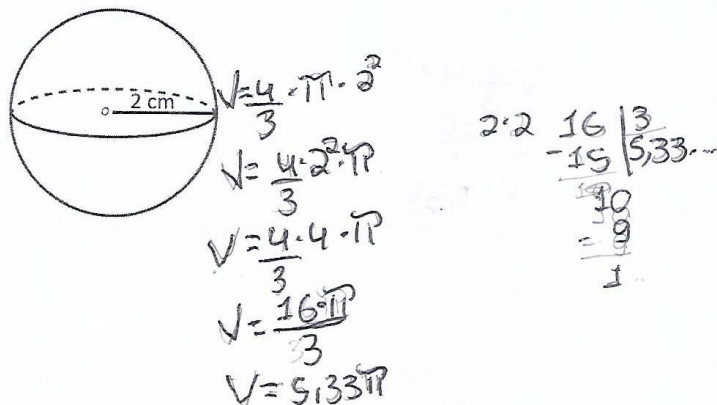 2 cm
V=4/3·π·2²
V=4/3·2²·π
V=4/3·4·π
V=16·π/3
V=5,33π
2·2 16 | 3
-15 | 5,33...
10
- 9
1